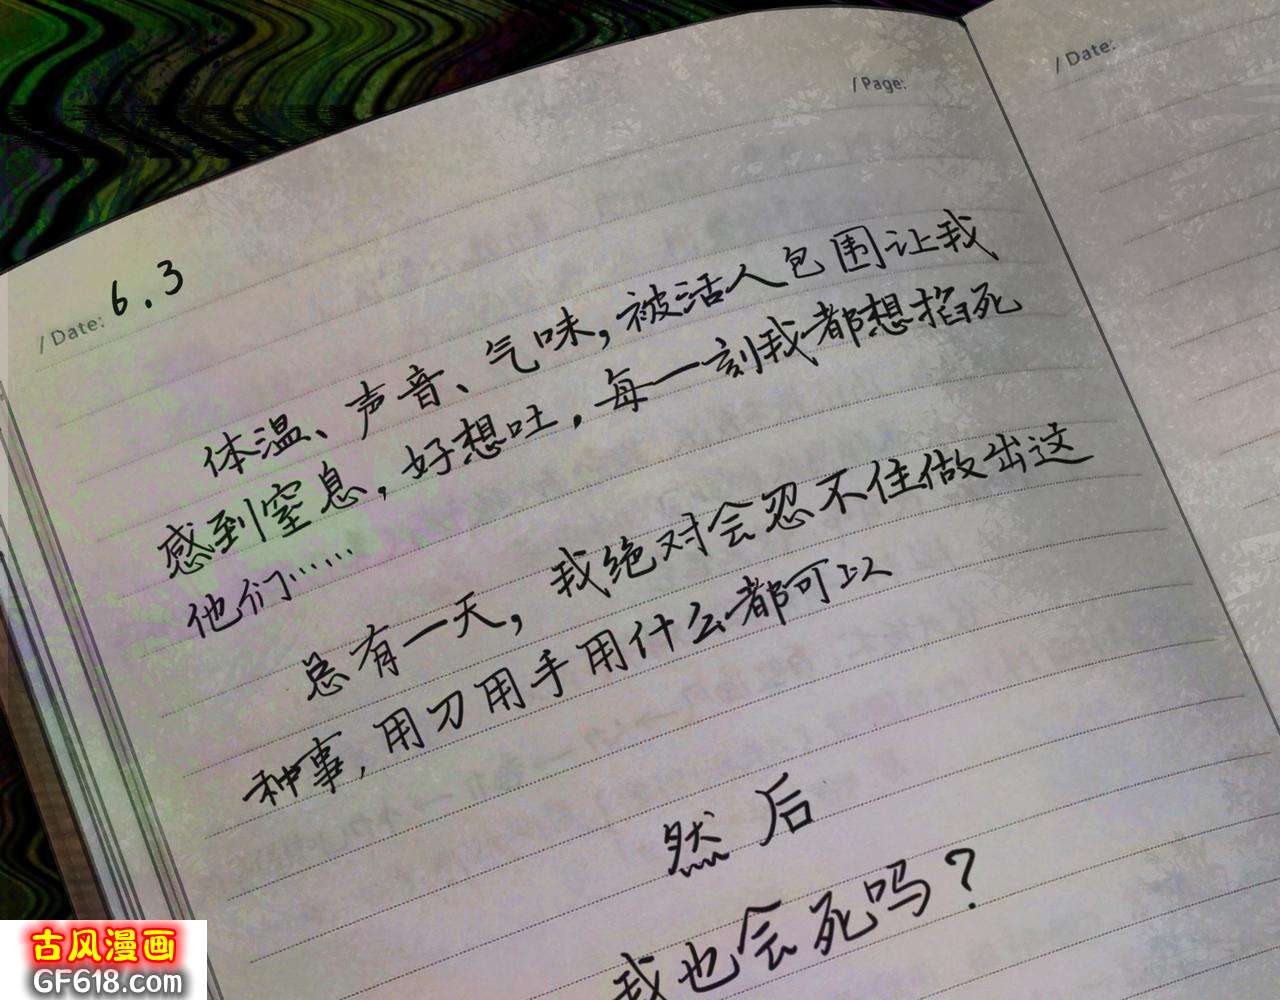 / Page:
/ Date:
/ Date: 6.3
体温、声音、气味，被活人包围让我
感到窒息，好想吐，每一刻我都想掐死
他们……
总有一天，我绝对会忍不住做出这
种事，用刀用手用什么都可以
然后
我也会死吗？
古风漫画
GF618.com